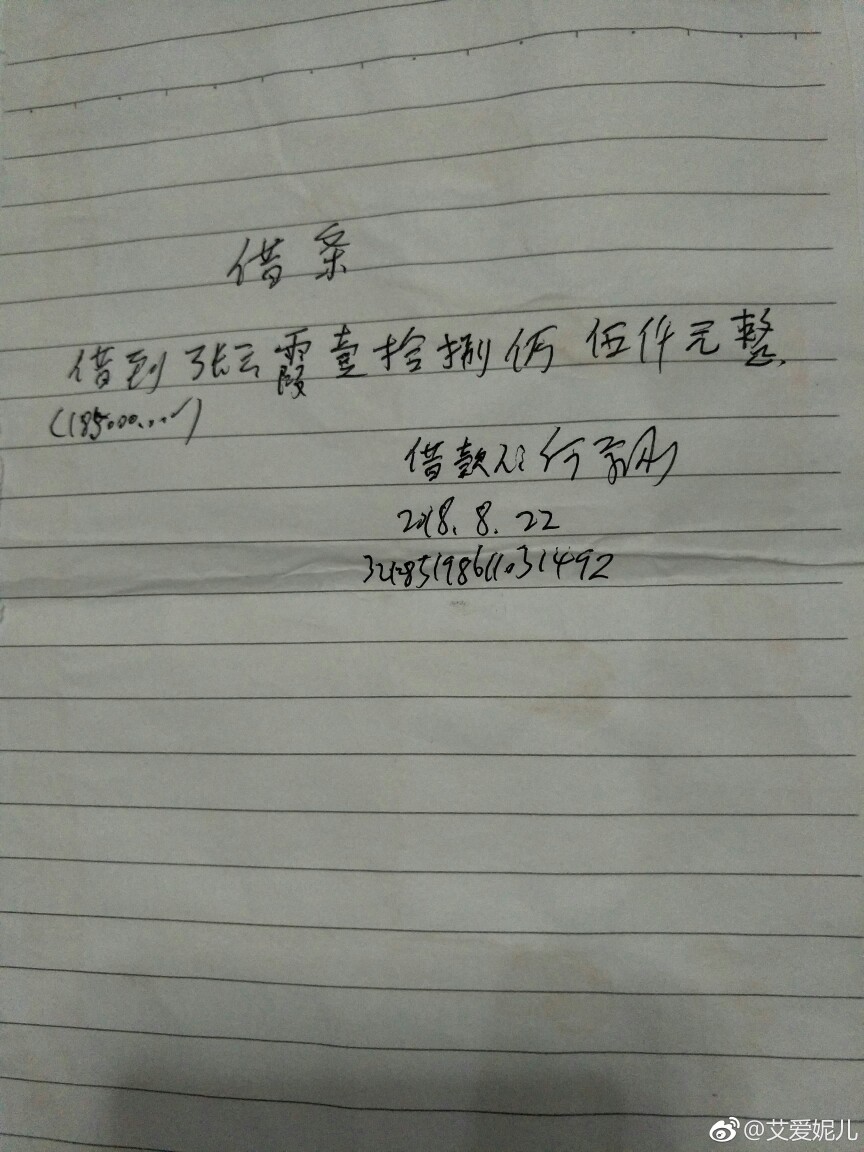 借条
借到张云霞壹拾捌仟 伍仟元整.
(185000.
借款人: 何
2018. 8. 22
@艾爱妮儿